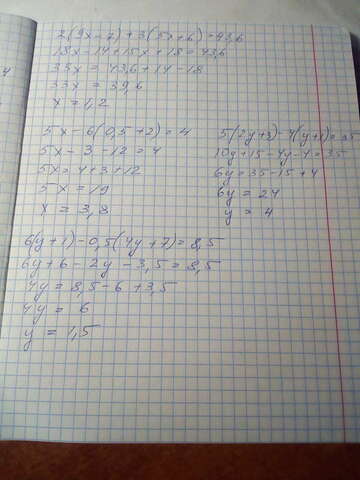 2(9x-7)+3(5x+6)=43,6
18x-14+15x+18=43,6
33x=43,6+14-18
33x=39,6
x=1,2
5x-6(0,5+2)=4
5x-3-12=4
5x=4+3+12
5x=19
x=3,8
5(2y+3)-4(y+1)=35
10y+15-4y-4=35
6y=35-15+4
6y=24
y=4
6(y+1)-0,5(4y+7)=8,5
6y+6-2y-3,5=8,5
4y=8,5-6+3,5
4y=6
y=1,5